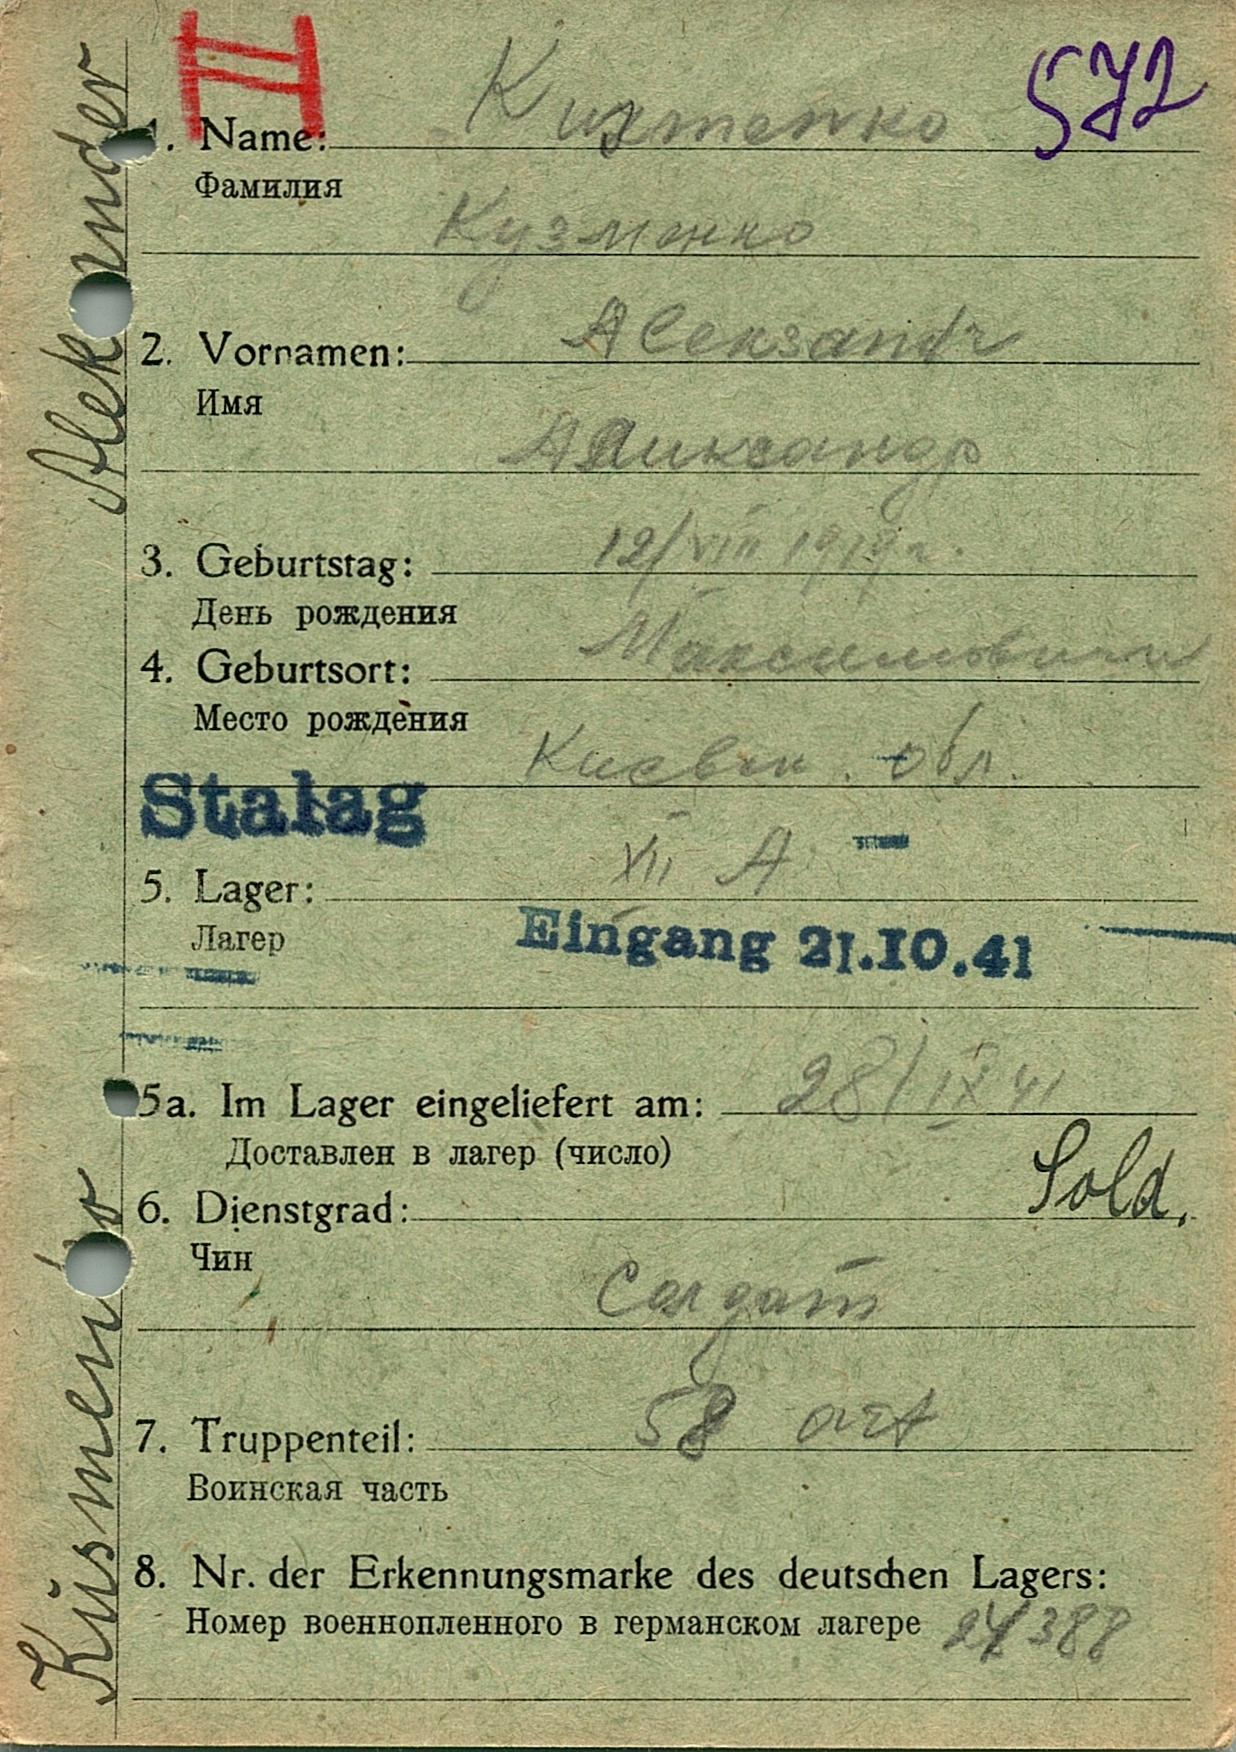 572
1. Name:
Фамилия
Кузменко
2. Vornamen: Alексandr
Имя
Аликсандр
3. Geburtstag: 12/VIII 1919 г.
День рождения
4. Geburtsort: Максимовичи
Место рождения
Киевск. обл.
Stalag
5. Lager: XII A
Лагер
Eingang 21.10.41
5a. Im Lager eingeliefert am: 28/IX 41
Доставлен в лагер (число)
6. Dienstgrad: Sold.
Чин
7. Truppenteil: 58 art
Воинская часть
8. Nr. der Erkennungsmarke des deutschen Lagers:
Номер военнопленного в германском лагере 24388
Kusmenko Alekander